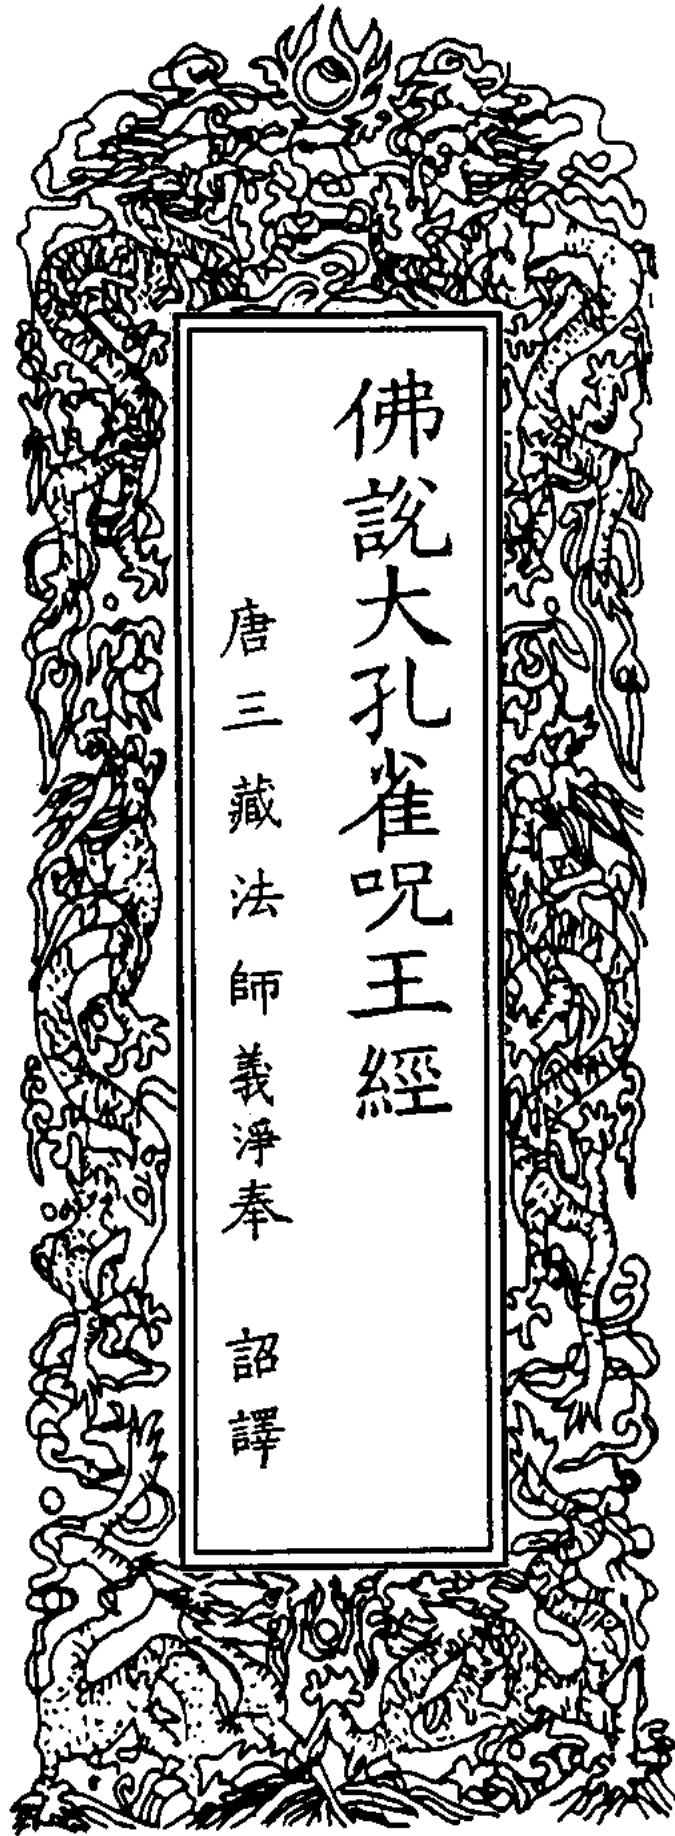 佛說大孔雀咒王經
唐三藏法師義淨奉　詔譯